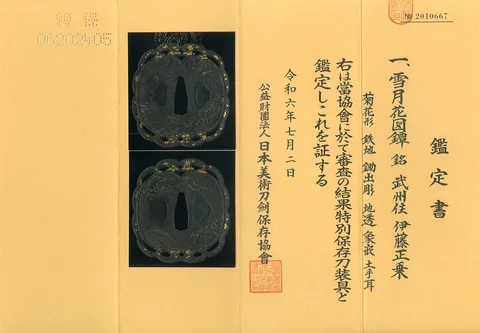 № 2010667
鑑定書
一、雪月花図鐔 銘 武州住 伊藤正乗
菊花形 鉄地 鋤出彫 地透 象嵌 土手耳
右は當協會に於て審査の結果特別保存刀装具と
鑑定しこれを証する
令和六年七月二日
公益財團法人 日本美術刀劍保存協會
特保
06202405